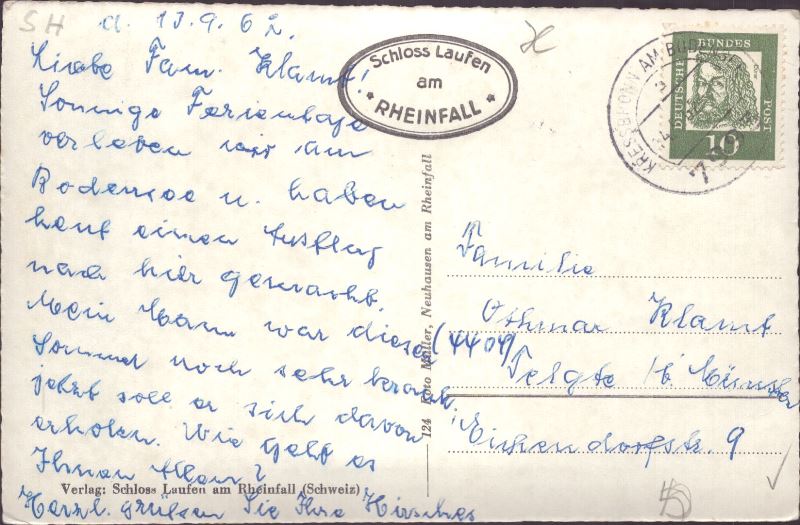 SH
d. 13.9.62.
Liebe Fam. Klamt!
Sonnige Ferientage
verleben wir am
Bodensee u. haben
heut einen Ausflug
nach hier gemacht.
Mein Mann war diesen
Sommer noch sehr krank,
jetzt soll er sich davon
erholen. Wie geht es
Ihnen Allen?
Herzl. grüßen Sie Ihre Hirsches
Verlag: Schloss Laufen am Rheinfall (Schweiz)
Schloss Laufen
am
* RHEINFALL *
124 Foto Müller, Neuhausen am Rheinfall
KRESSBRONN AM BODENSEE
DEUTSCHE BUNDESPOST
10
Familie
Othmar Klamt
(4404) Telgte b/ Münster
Eichendorfstr. 9